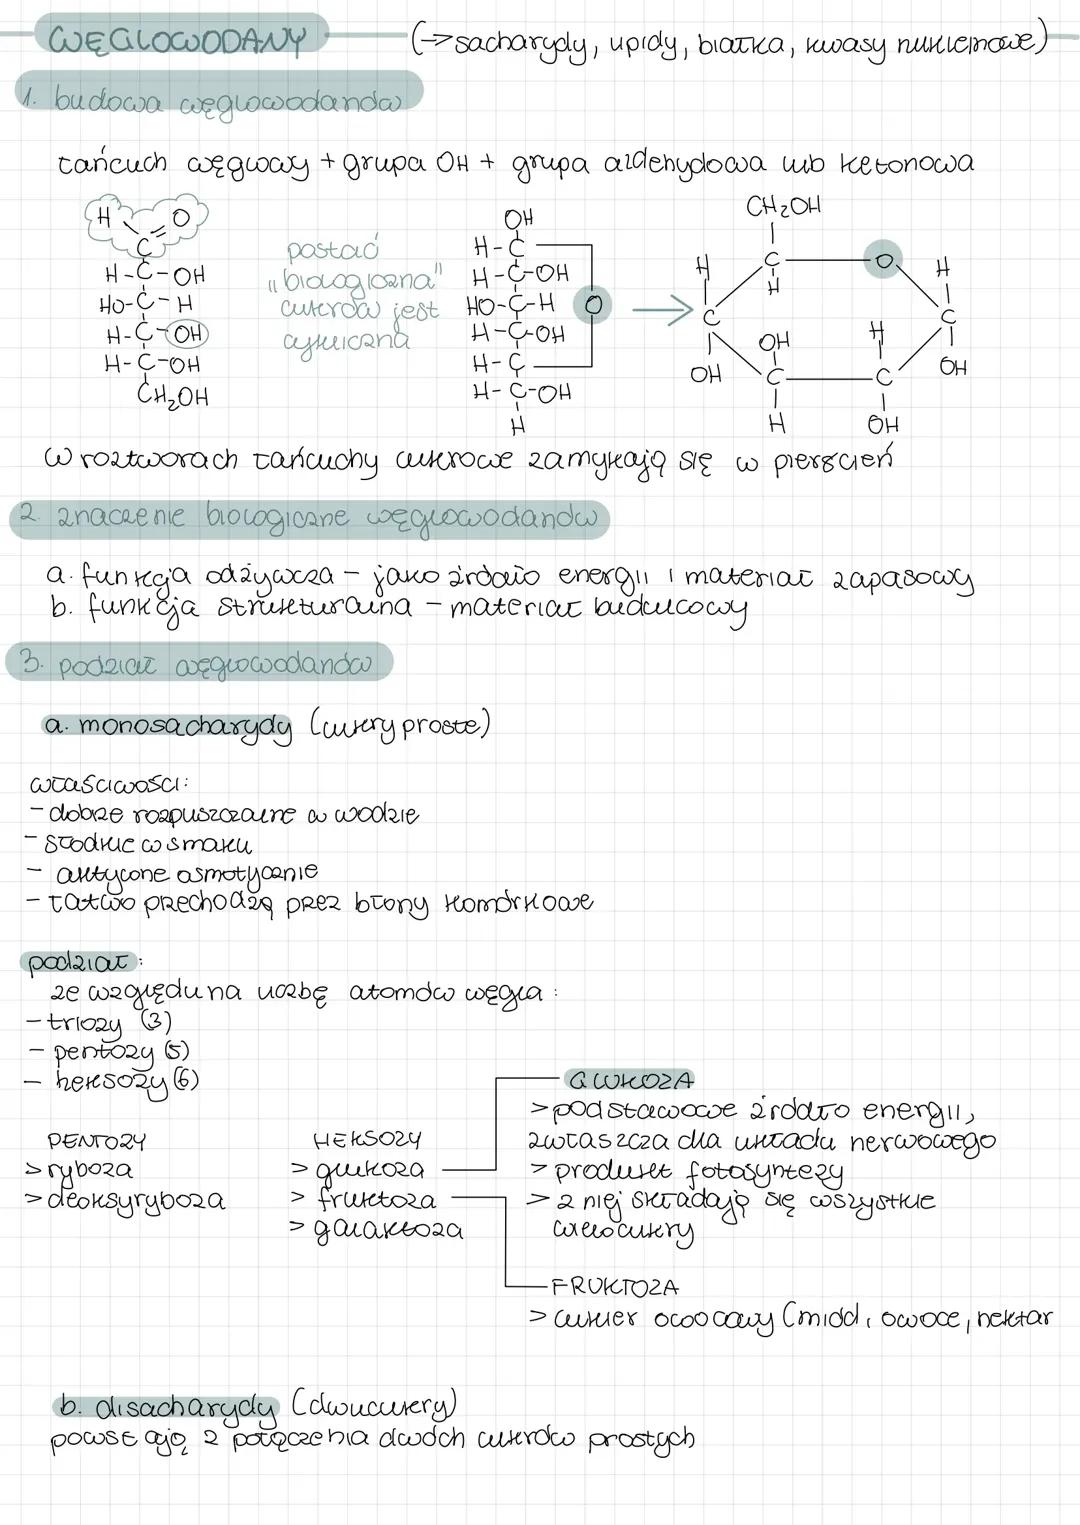 WĘGLOWODANY (→ sacharydy, lipidy, białka, kwasy nukleinowe)
1. budowa węglowodanów
łańcuch węglowy + grupa OH + grupa aldehydowa lub ketonowa
H O
C
H-C-OH
HO-C-H
H-C-OH
H-C-OH
CH₂OH
postać
"biologiczna"
cukrów jest
cykliczna
OH
H-C
H-C-OH
HO-C-H O
H-C-OH
H-C
H-C-OH
H
→
CH₂OH
H C O H
H
C C
OH H
OH C C OH
H OH
w roztworach łańcuchy cukrowe zamykają się w pierścień
2. znaczenie biologiczne węglowodanów
a. funkcja odżywcza - jako źródło energii i materiał zapasowy
b. funkcja strukturalna - materiał budulcowy
3. podział węglowodanów
a. monosacharydy (cukry proste)
właściwości:
- dobrze rozpuszczalne w wodzie
- słodkie w smaku
- aktyczne osmotycznie
- łatwo przechodzą prez błony komórkowe
podział:
ze względu na liczbę atomów węgla:
- triozy (3)
- pentozy (5)
- heksozy (6)
PENTOZY
> ryboza
> deoksyryboza
HEKSOZY
> glukoza
> fruktoza
> galaktoza
GLUKOZA
> podstawowe źródło energii,
zwłaszcza dla układu nerwowego
> produkt fotosyntezy
> z niej składają się wszystkie
wielocukry
FRUKTOZA
> cukier owocowy (miód, owoce, nektar
b. disacharydy (dwucukry)
powstają z połączenia dwóch cukrów prostych